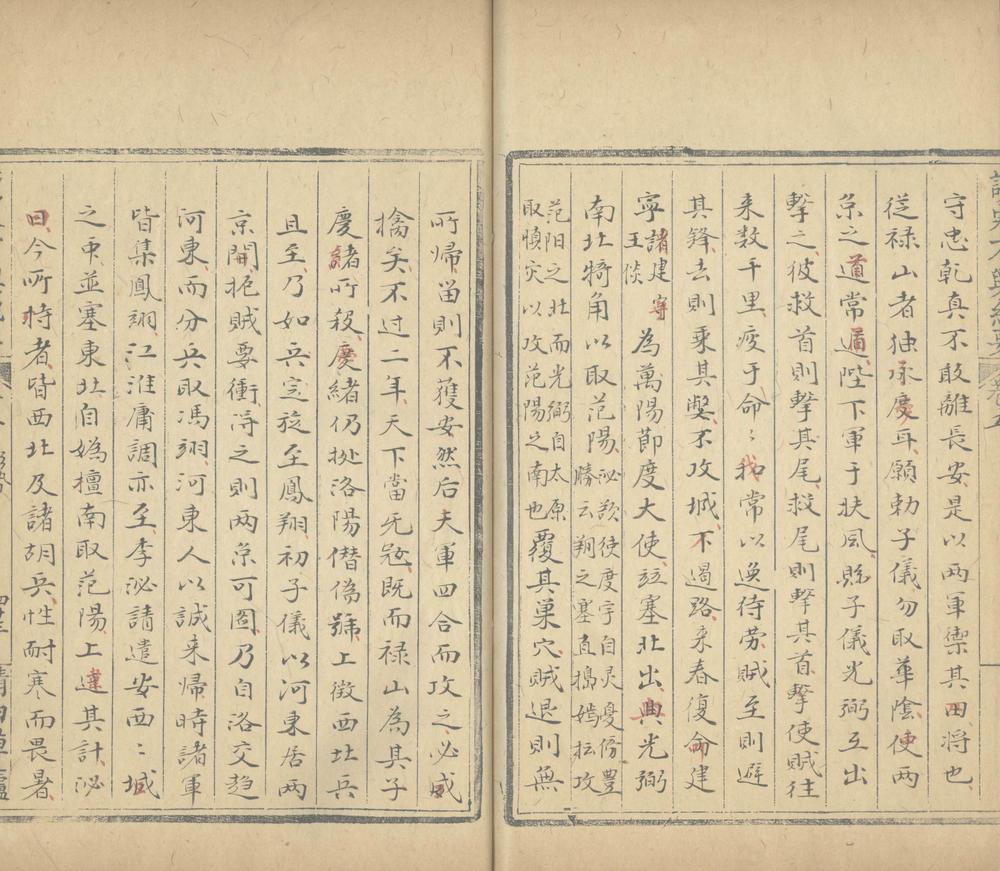 守忠乾真不敢離長安是以两軍禦其田将也
従禄山者独承慶耳願勅子儀勿取華陰使两
京之道常通陛下軍于扶风縣子儀光弼互出
擊之彼救首則擊其尾救尾則擊其首擊使贼往
来数千里疲于命〻我常以逸待劳贼至則避
其鋒去則乗其獘不攻城不遏路来春復命建
寧諸建寧王倓為萬陽節度大使竝塞北出與光弼
南北犄角以取范陽泌欲使度宇自灵夏傍豐勝云朔之塞直搗媯檀攻
范阳之北而光弼自太原取愼灾以攻范陽之南也覆其巢穴贼退則無
所帰留則不獲安然后大軍四合而攻之必成
擒矣不过二年天下當无冦既而禄山為其子
慶緒所殺慶緒仍挻洛陽僭偽號上徵西北兵
且至乃如兵定旋至鳳翔初子儀以河東居两
京間扼贼要衝淂之則两京可圖乃自洛交趋
河東而分兵取馮翊河東人以誠来帰時諸軍
皆集鳳翊江淮庸調亦至李泌請遣安西〻域
之中並塞東北自媯檀南取范陽上違其計泌
曰今所恃者皆西北及諸胡兵性耐寒而畏暑